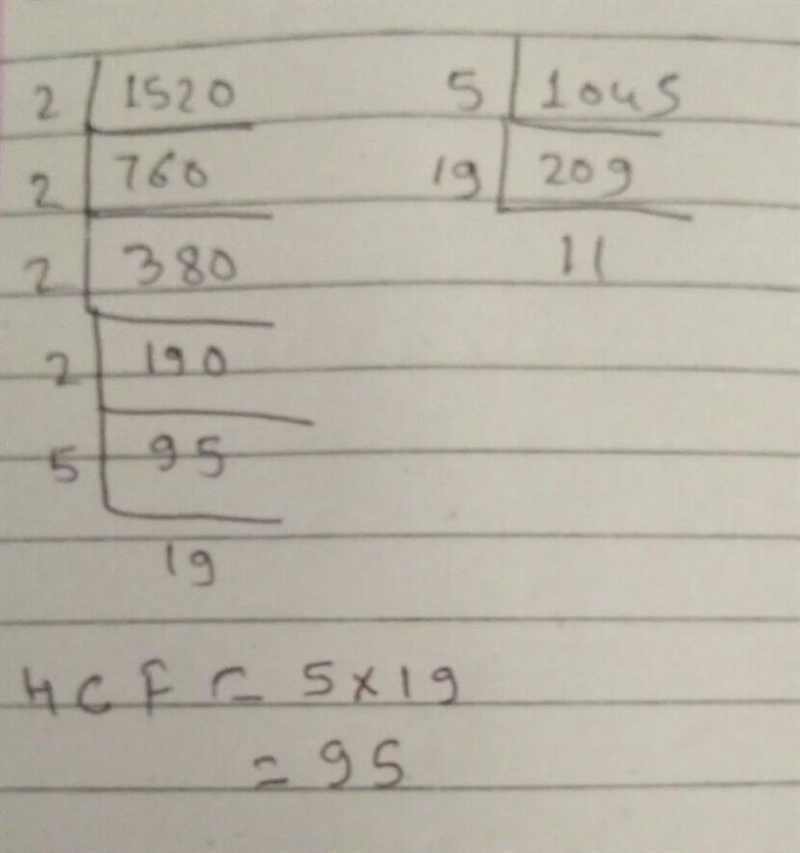 2 | 1520
2 | 760
2 | 380
2 | 190
5 | 95
19
5 | 1045
19 | 209
11
HCF = 5×19
= 95